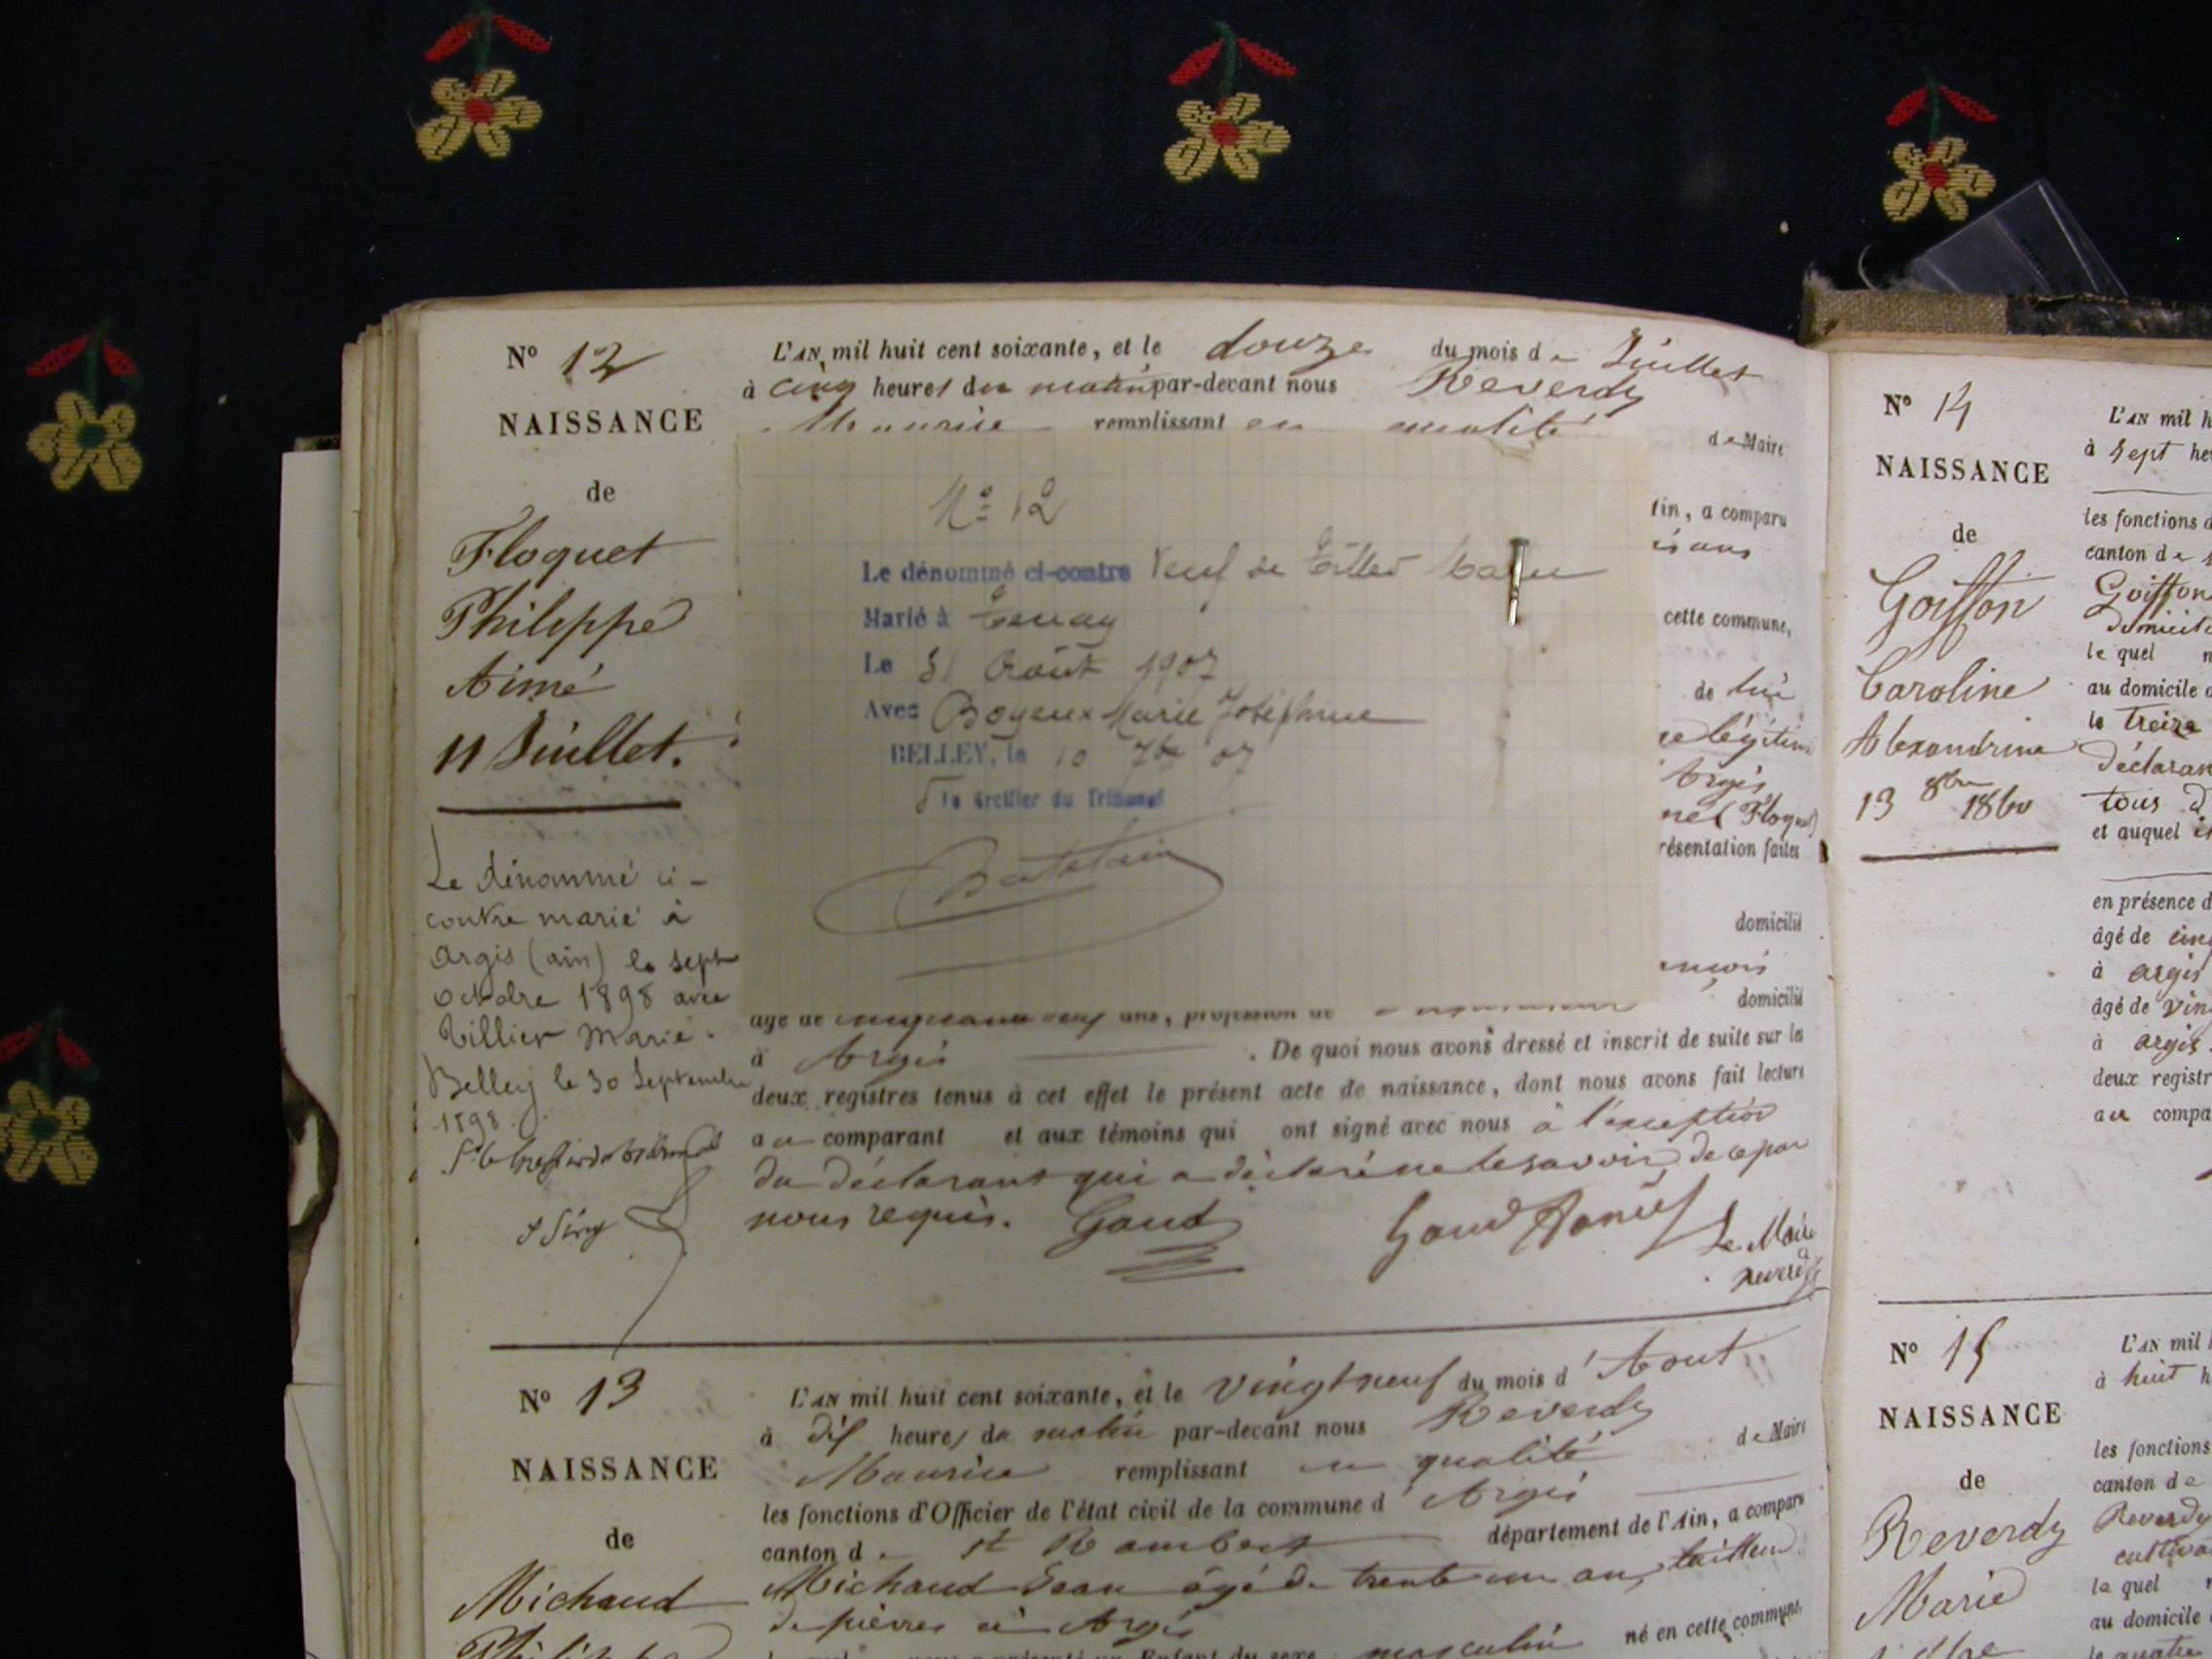 N° 12
NAISSANCE
de
Floquet
Philippe
Aimé
11 Juillet.
Le dénommé ci-
contre marié à
Argis (ain) le sept
octobre 1898 avec
Tillier Marie.
Belley le 30 Septembre
1898.
L'AN mil huit cent soixante, et le douze du mois de Juillet
à cinq heures du matin par-devant nous Reverdy
Maurice remplissant en qualité de Maire
N° 12
Le dénommé ci-contre Veuf de Tillier Marie
Marié à Tenay
Le 31 Août 1907
Avec Boyeux Marie Joséphine
BELLEY, le 10 7bre 07
le Greffier du Tribunal
tin, a comparu
is ans
cette commune,
de lui
légitime
Argis
(Floquet)
résentation faites
domicilié
domicilié
âgé de cinquante neuf ans, profession de
à Argis . De quoi nous avons dressé et inscrit de suite sur les
deux registres tenus à cet effet le présent acte de naissance, dont nous avons fait lecture
au comparant et aux témoins qui ont signé avec nous à l'exception
du déclarant qui a déclaré ne le savoir, de ce par
nous requis. Gaud Gaud Le Maire
Reverdy
N° 13
NAISSANCE
de
Michaud
L'AN mil huit cent soixante, et le vingt neuf du mois d'Aout
à dix heures du matin par-devant nous Reverdy
Maurice remplissant en qualité de Maire
les fonctions d'Officier de l'état civil de la commune d'Argis
canton de St Rambert département de l'Ain, a comparu
Michaud Jean âgé de trente un an, tailleur
de pierres à Argis
masculin né en cette commune
N° 14
NAISSANCE
de
Goiffon
Caroline
Alexandrine
13 8bre 1860
L'AN mil h
à sept he
les fonctions d
canton de
Goiffon
domicil
le quel
au domicile
le treize
déclaran
tous d
et auquel
en présence d
âgé de cinq
à argis
âgé de vin
à argis
deux registr
au compa
N° 15
NAISSANCE
de
Reverdy
Marie
L'AN mil
à huit h
les fonctions
canton de
Reverdy
cultiva
le quel
au domicile
le quatre